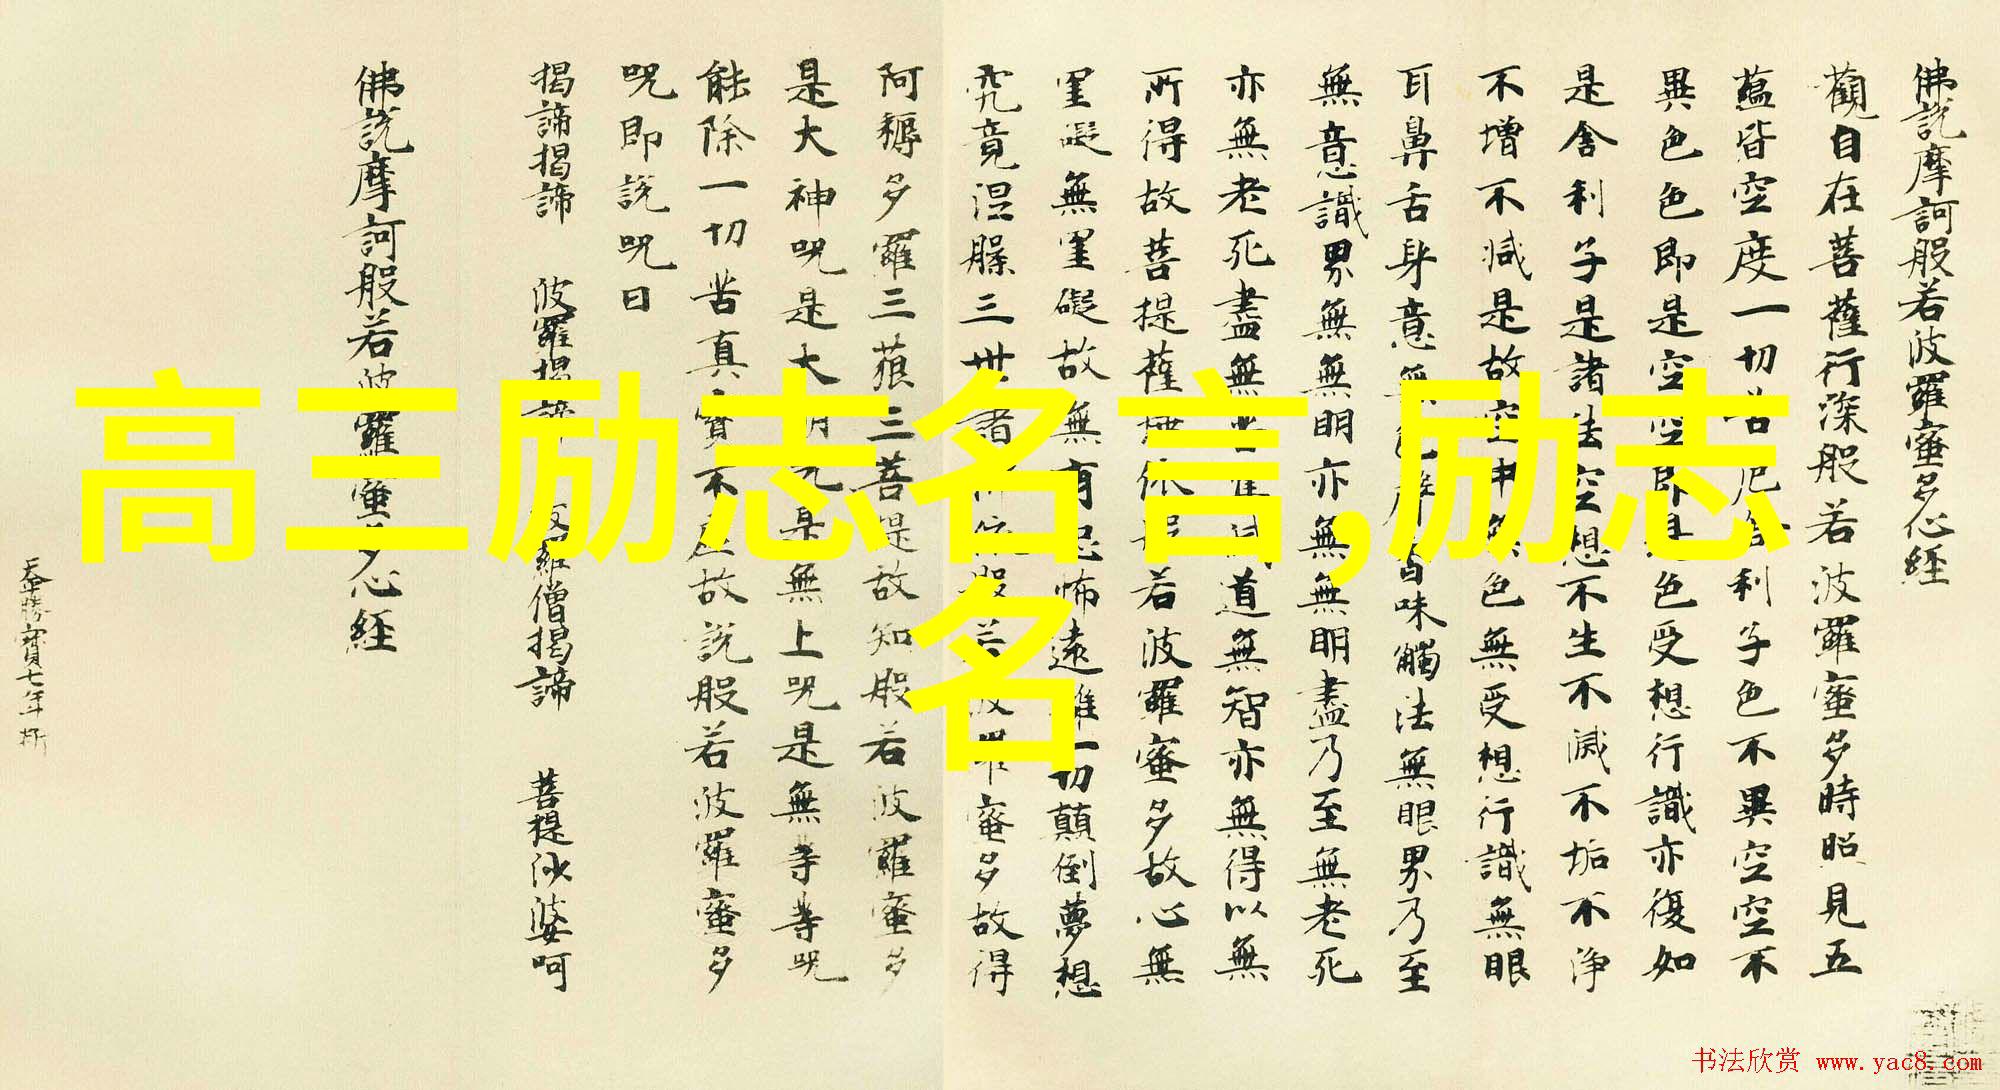 高三励志名言,励志
名
佛說摩訶般若波羅蜜多心經
觀自在菩薩行深般若波羅蜜多時照見五
蘊皆空度一切苦厄舍利子色不異空空不
異色色即是空空即是色受想行識亦復如
是舍利子是諸法空想不生不滅不垢不淨
不增不減是故空中無色無受想行識無眼
耳鼻舌身意無色聲香味觸法無眼界乃至
無意識界無無明亦無無明盡乃至無老死
亦無老死盡無苦集滅道無智亦無得以無
所得故菩提薩埵依般若波羅蜜多故心無
罣礙無罣礙故無有恐怖遠離一切顛倒夢想
究竟涅槃三世諸佛依般若波羅蜜多故得
阿耨多羅三藐三菩提故知般若波羅蜜多
是大神呪是大明呪是無上呪是無等等呪
能除一切苦真實不虛故說般若波羅蜜多
呪即說呪曰
揭諦揭諦 波羅揭諦 波羅僧揭諦 菩提沙婆呵
佛說摩訶般若波羅蜜多心經
勝寶七年
书法欣赏 www.yac8.com